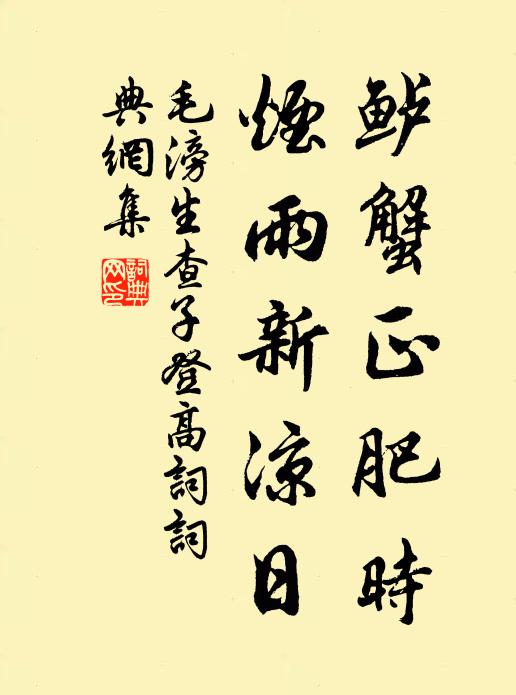 鲈蟹正肥時
煙雨新涼日
毛滂生查子登高詞詞
典網集
詞典网印